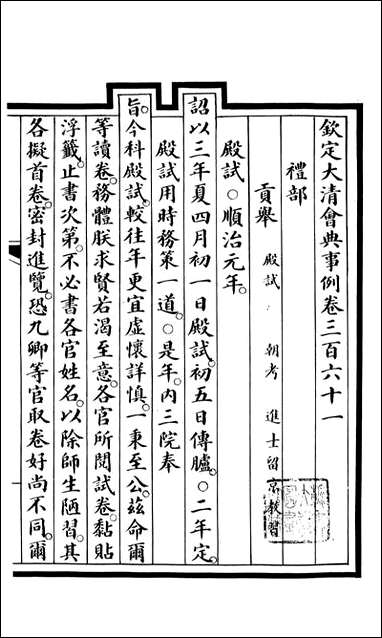 欽定大清會典事例卷三百六十一
禮部
貢舉 殿試 朝考 進士留京教習
殿試。○順治元年。
詔以三年夏四月初一日殿試。初五日傳臚。○二年定。
殿試用時務策一道。○是年。內三院奉
旨。今科殿試。較往年更宜虛懷詳慎。一秉至公。茲命爾
等讀卷。務體朕求賢若渴至意。各官所閱試卷。黏貼
浮籤。止書次第。不必書各官姓名。以除師生陋習。其
各擬首卷。密封進覽。恐九卿等官取卷好尚不同。爾